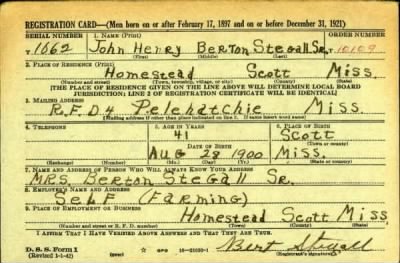 REGISTRATION CARD—(Men born on or after February 17, 1897 and on or before December 31, 1921)
SERIAL NUMBER 1. NAME (Print) ORDER NUMBER
T 1062 John Henry Berton Stegall Sr. 10109
2. PLACE OF RESIDENCE (Print)
Homestead Scott Miss.
(Number and street) (Town, township, village, or city) (County) (State)
[THE PLACE OF RESIDENCE GIVEN ON THE LINE ABOVE WILL DETERMINE LOCAL BOARD
JURISDICTION; LINE 2 OF REGISTRATION CERTIFICATE WILL BE IDENTICAL]
3. MAILING ADDRESS
R.F.D 4 Pelehatchie Miss.
[Mailing address if other than place indicated on line 2. If same insert word same]
4. TELEPHONE 5. AGE IN YEARS 6. PLACE OF BIRTH
41 Scott
DATE OF BIRTH (Town or county)
Aug 28 1900 Miss.
(Exchange) (Number) (Mo.) (Day) (Yr.) (State or country)
7. NAME AND ADDRESS OF PERSON WHO WILL ALWAYS KNOW YOUR ADDRESS
MRS. Berton Stegall Sr.
8. EMPLOYER'S NAME AND ADDRESS
Self (Farming)
9. PLACE OF EMPLOYMENT OR BUSINESS
Homestead Scott Miss
(Number and street or R. F. D. number) (Town) (County) (State)
I AFFIRM THAT I HAVE VERIFIED ABOVE ANSWERS AND THAT THEY ARE TRUE.
D. S. S. Form 1 GPO Bert Stegall
(Revised 1-1-42) (over) (Registrant's signature)